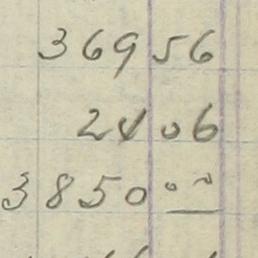 369 56
24 06
3850 00